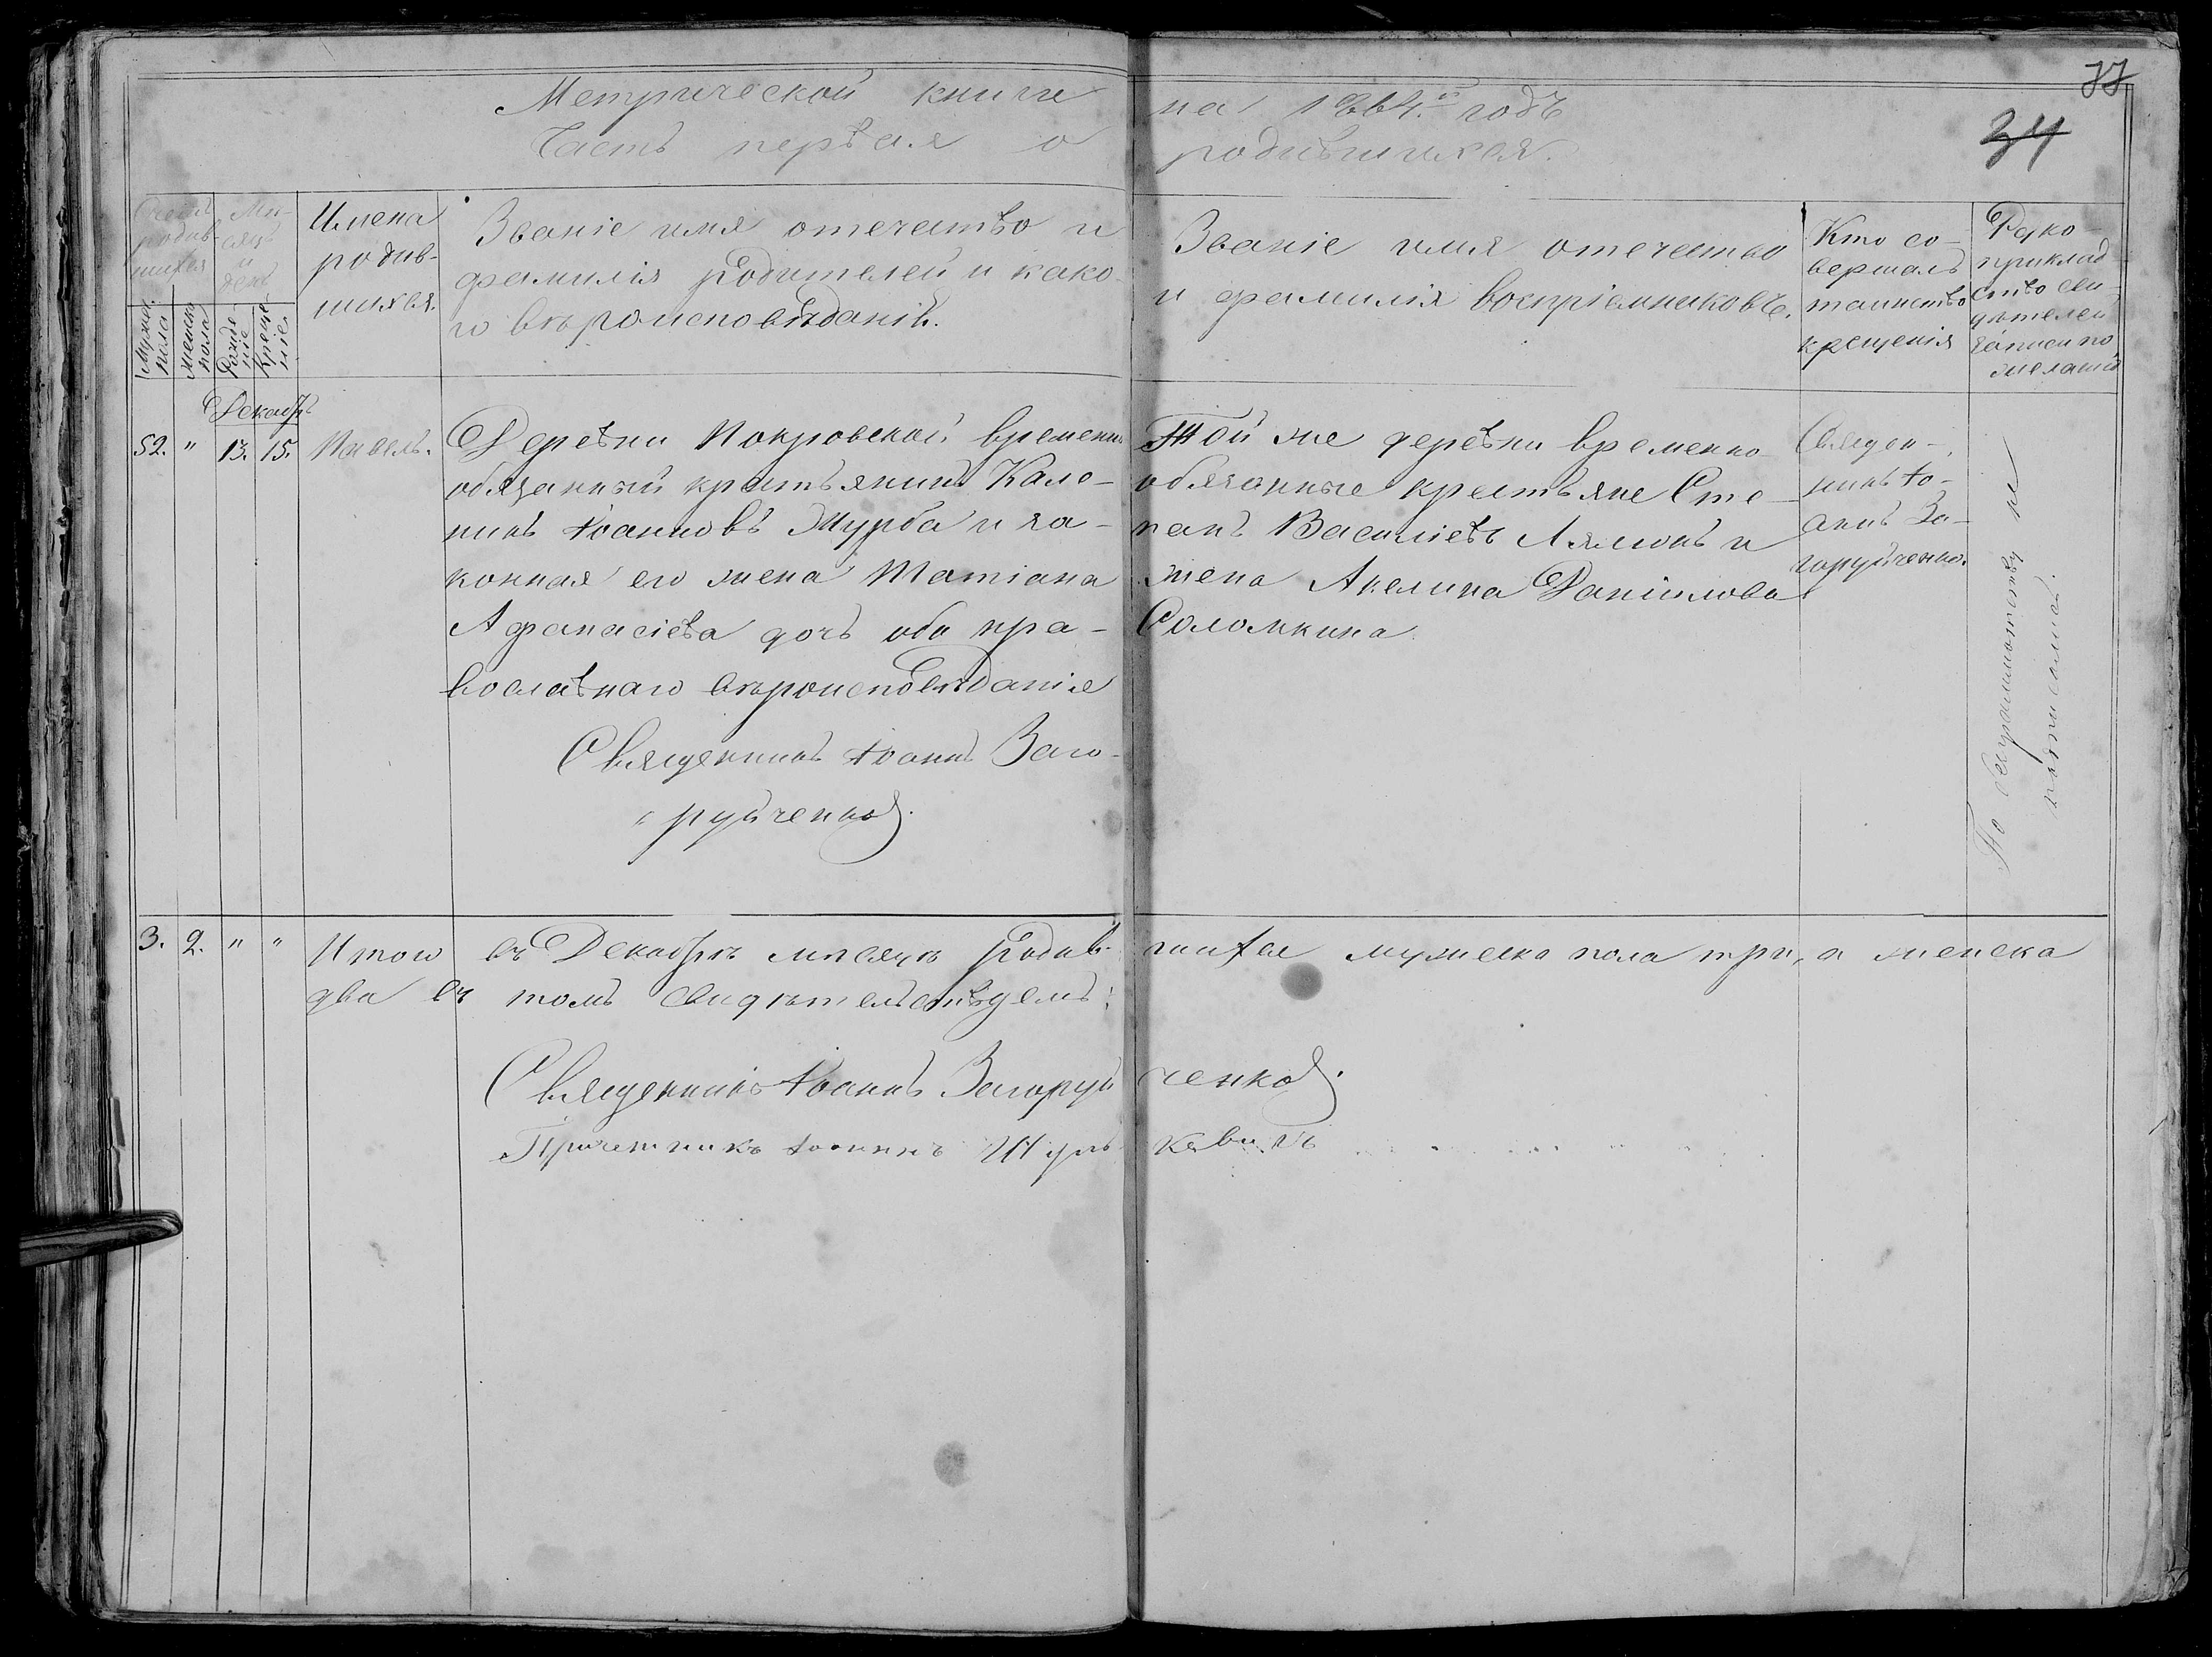 77
34
Метрической книги на 1864.й годъ
Часть первая о родившихся.
Счетъ родив-шихся
Мужеска пола
Женска пола
Мѣ-сяцъ и день
Рожде-ніе
Креще-ніе.
Имена
родив-
шихся.
Званіе имя отечество и
фамилія родителей и како-
го вѣроисповѣданія.
Званіе имя отечество
и фамилія воспріемниковъ.
Кто со-
вершалъ
таинство
крещенія
Руко-
приклад
ство сви-
дѣтелей
записи по
желанію
Декабрь
52. " 13. 15. Павелъ.
Деревни Покровской временно
обязанный крестьянинъ Кале-
никъ Іоанновъ Журба и за-
конная его жена Татіана
Афанасіева дочь оба пра-
вославнаго вѣроисповѣданія
Священникъ Іоаннъ Заго-
руйченко.
Той же деревни временно
обязанные крестьяне Сте-
панъ Василіевъ Лямонъ и
жена Акелина Даніилова
Соломкина
Священ-
никъ Іо-
аннъ За-
горуйченко.
По безграмотству не
подписались.
3. 2. " " Итого въ Декабрѣ мѣсяцѣ родив-шихся мужеска пола три, а женска
два въ томъ свидѣтельствуемъ:
Священникъ Іоаннъ Загоруйченко.
Причетникъ Іоаннъ